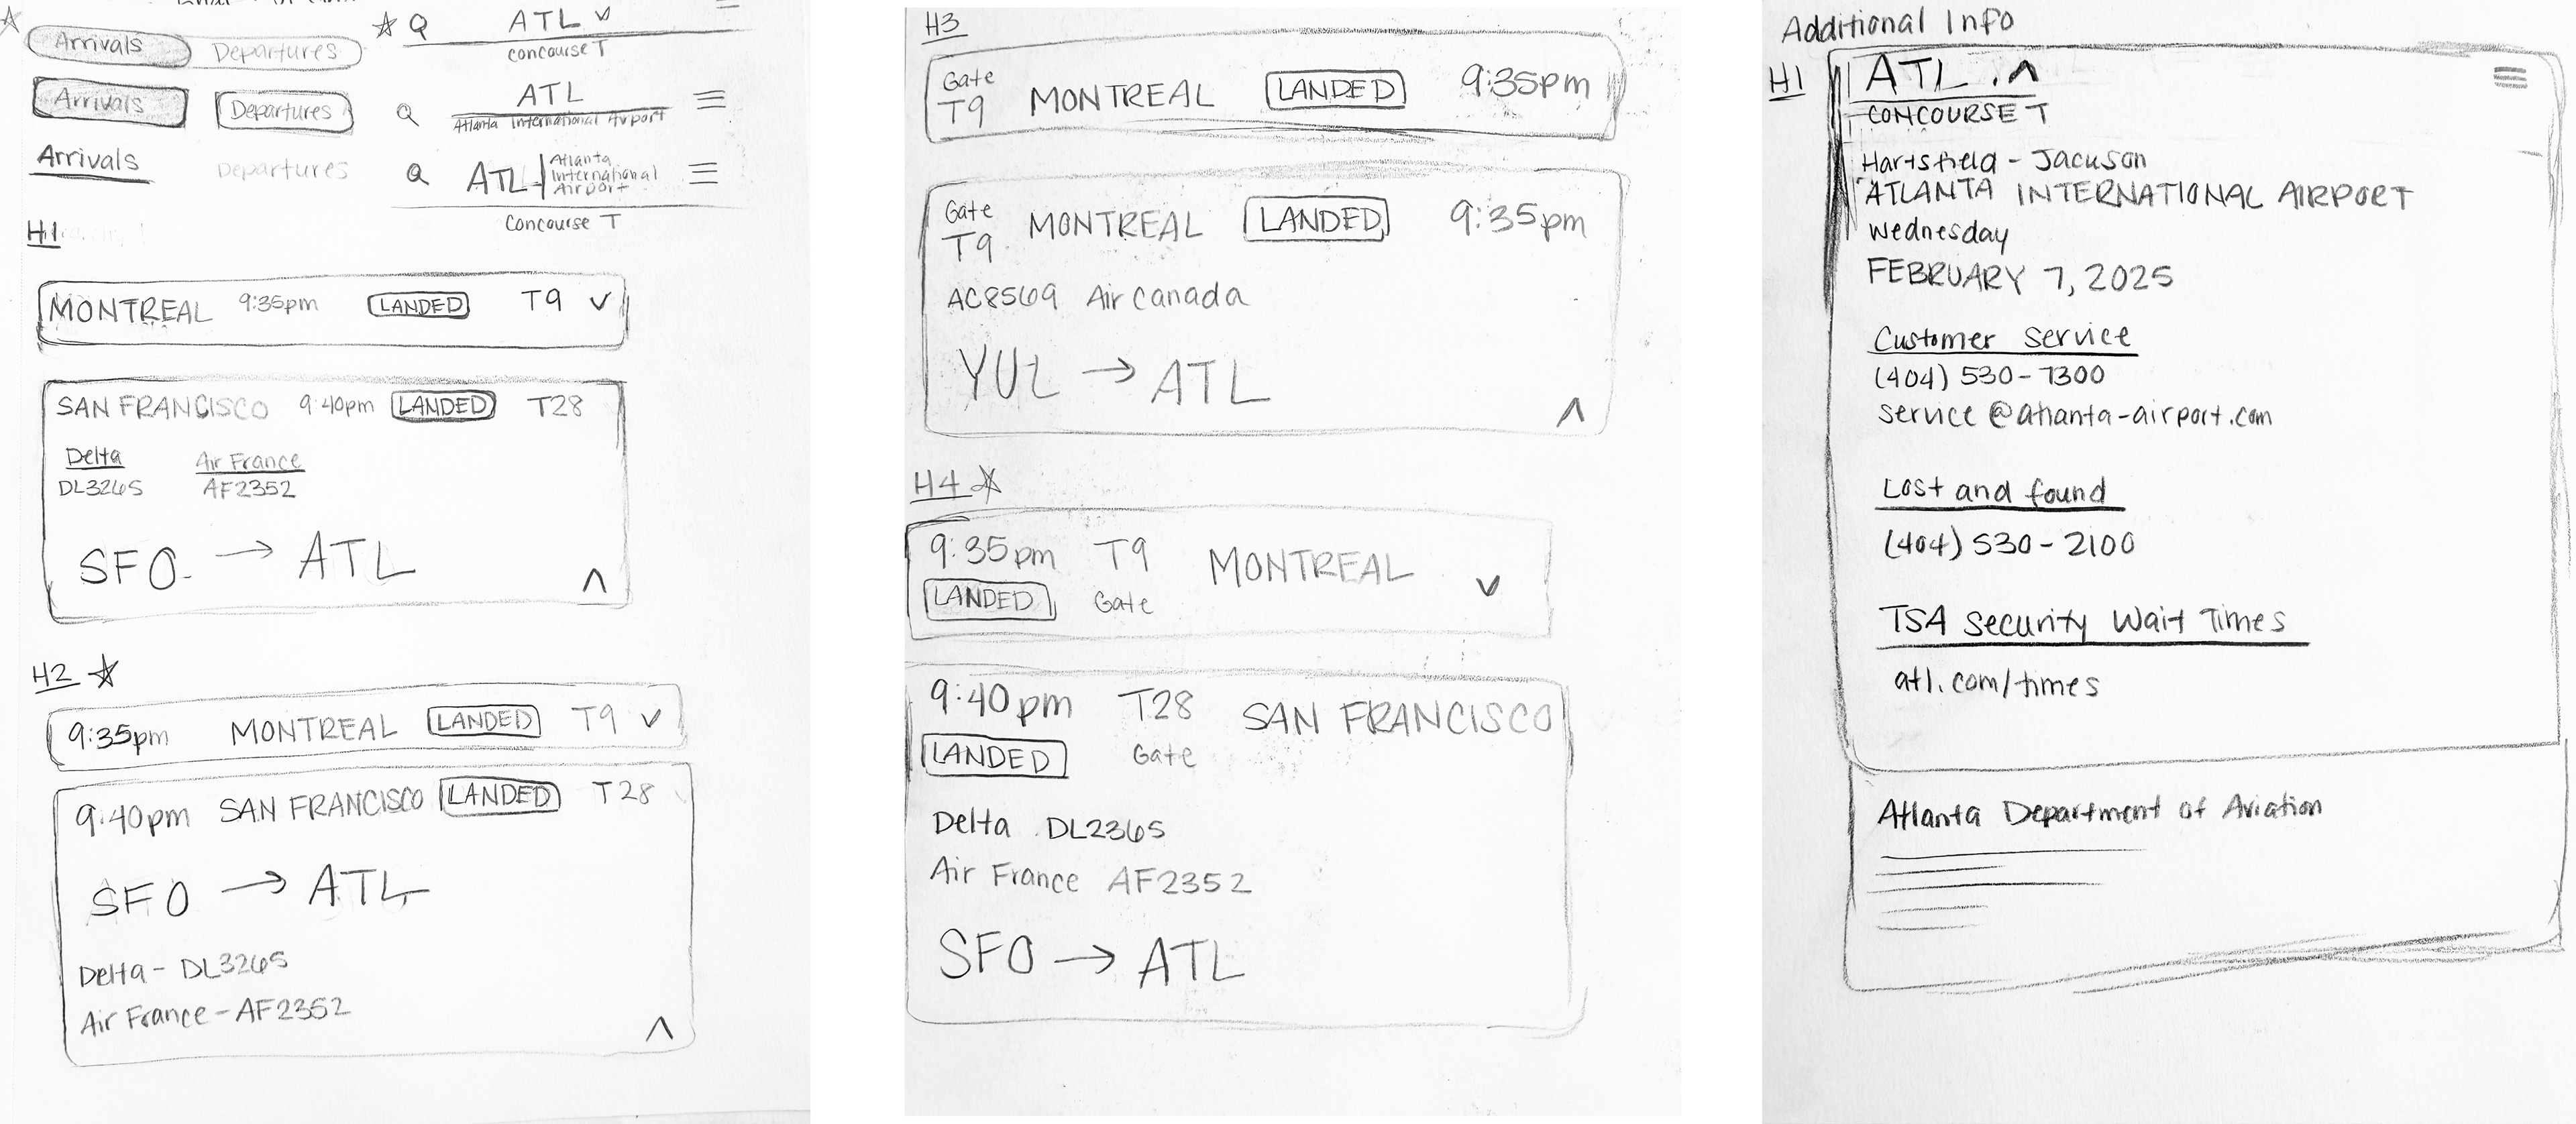 Arrivals Departures
ATL
Concourse T
Arrivals Departures
ATL
Atlanta International Airport
Arrivals Departures
ATL Atlanta
International
Airport
Concourse T
H1
MONTREAL 9:35pm LANDED T9
SAN FRANCISCO 9:40pm LANDED T28
Delta Air France
DL3265 AF2352
SFO → ATL
H2
9:35pm MONTREAL LANDED T9
9:40pm SAN FRANCISCO LANDED T28
SFO → ATL
Delta - DL3265
Air France - AF2352
H3
Gate
T9 MONTREAL LANDED 9:35pm
Gate
T9 MONTREAL LANDED 9:35pm
AC8569 Air Canada
YUL → ATL
H4
9:35pm T9 MONTREAL
LANDED Gate
9:40pm T28 SAN FRANCISCO
LANDED Gate
Delta DL2365
Air France AF2352
SFO → ATL
Additional Info
H1
ATL
CONCOURSE T
Hartsfield - Jackson
ATLANTA INTERNATIONAL AIRPORT
Wednesday
FEBRUARY 7, 2025
Customer Service
(404) 530-7300
service@atlanta-airport.com
Lost and found
(404) 530-2100
TSA Security Wait Times
atl.com/times
Atlanta Department of Aviation